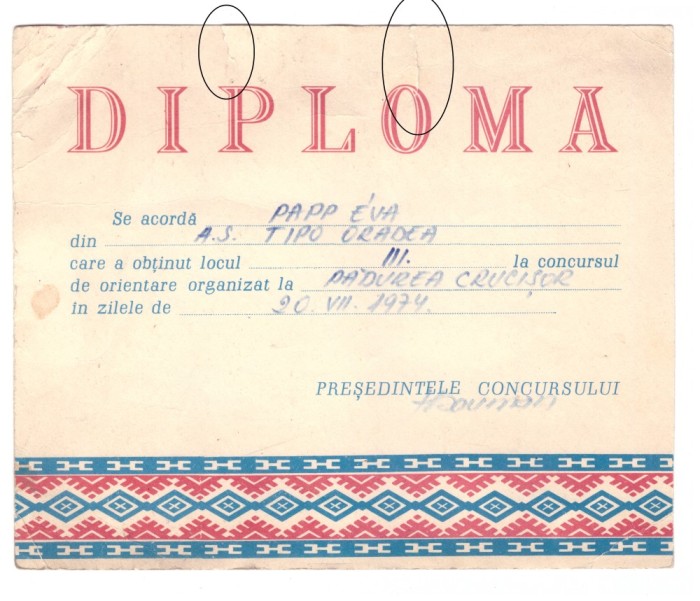 DIPLOMA
Se acordă PAPP ÉVA
din A.S. TIPO ORADEA
care a obținut locul III. la concursul
de orientare organizat la PĂDUREA CRUCIȘOR
în zilele de 20. VII. 1974.
PREȘEDINTELE CONCURSULUI